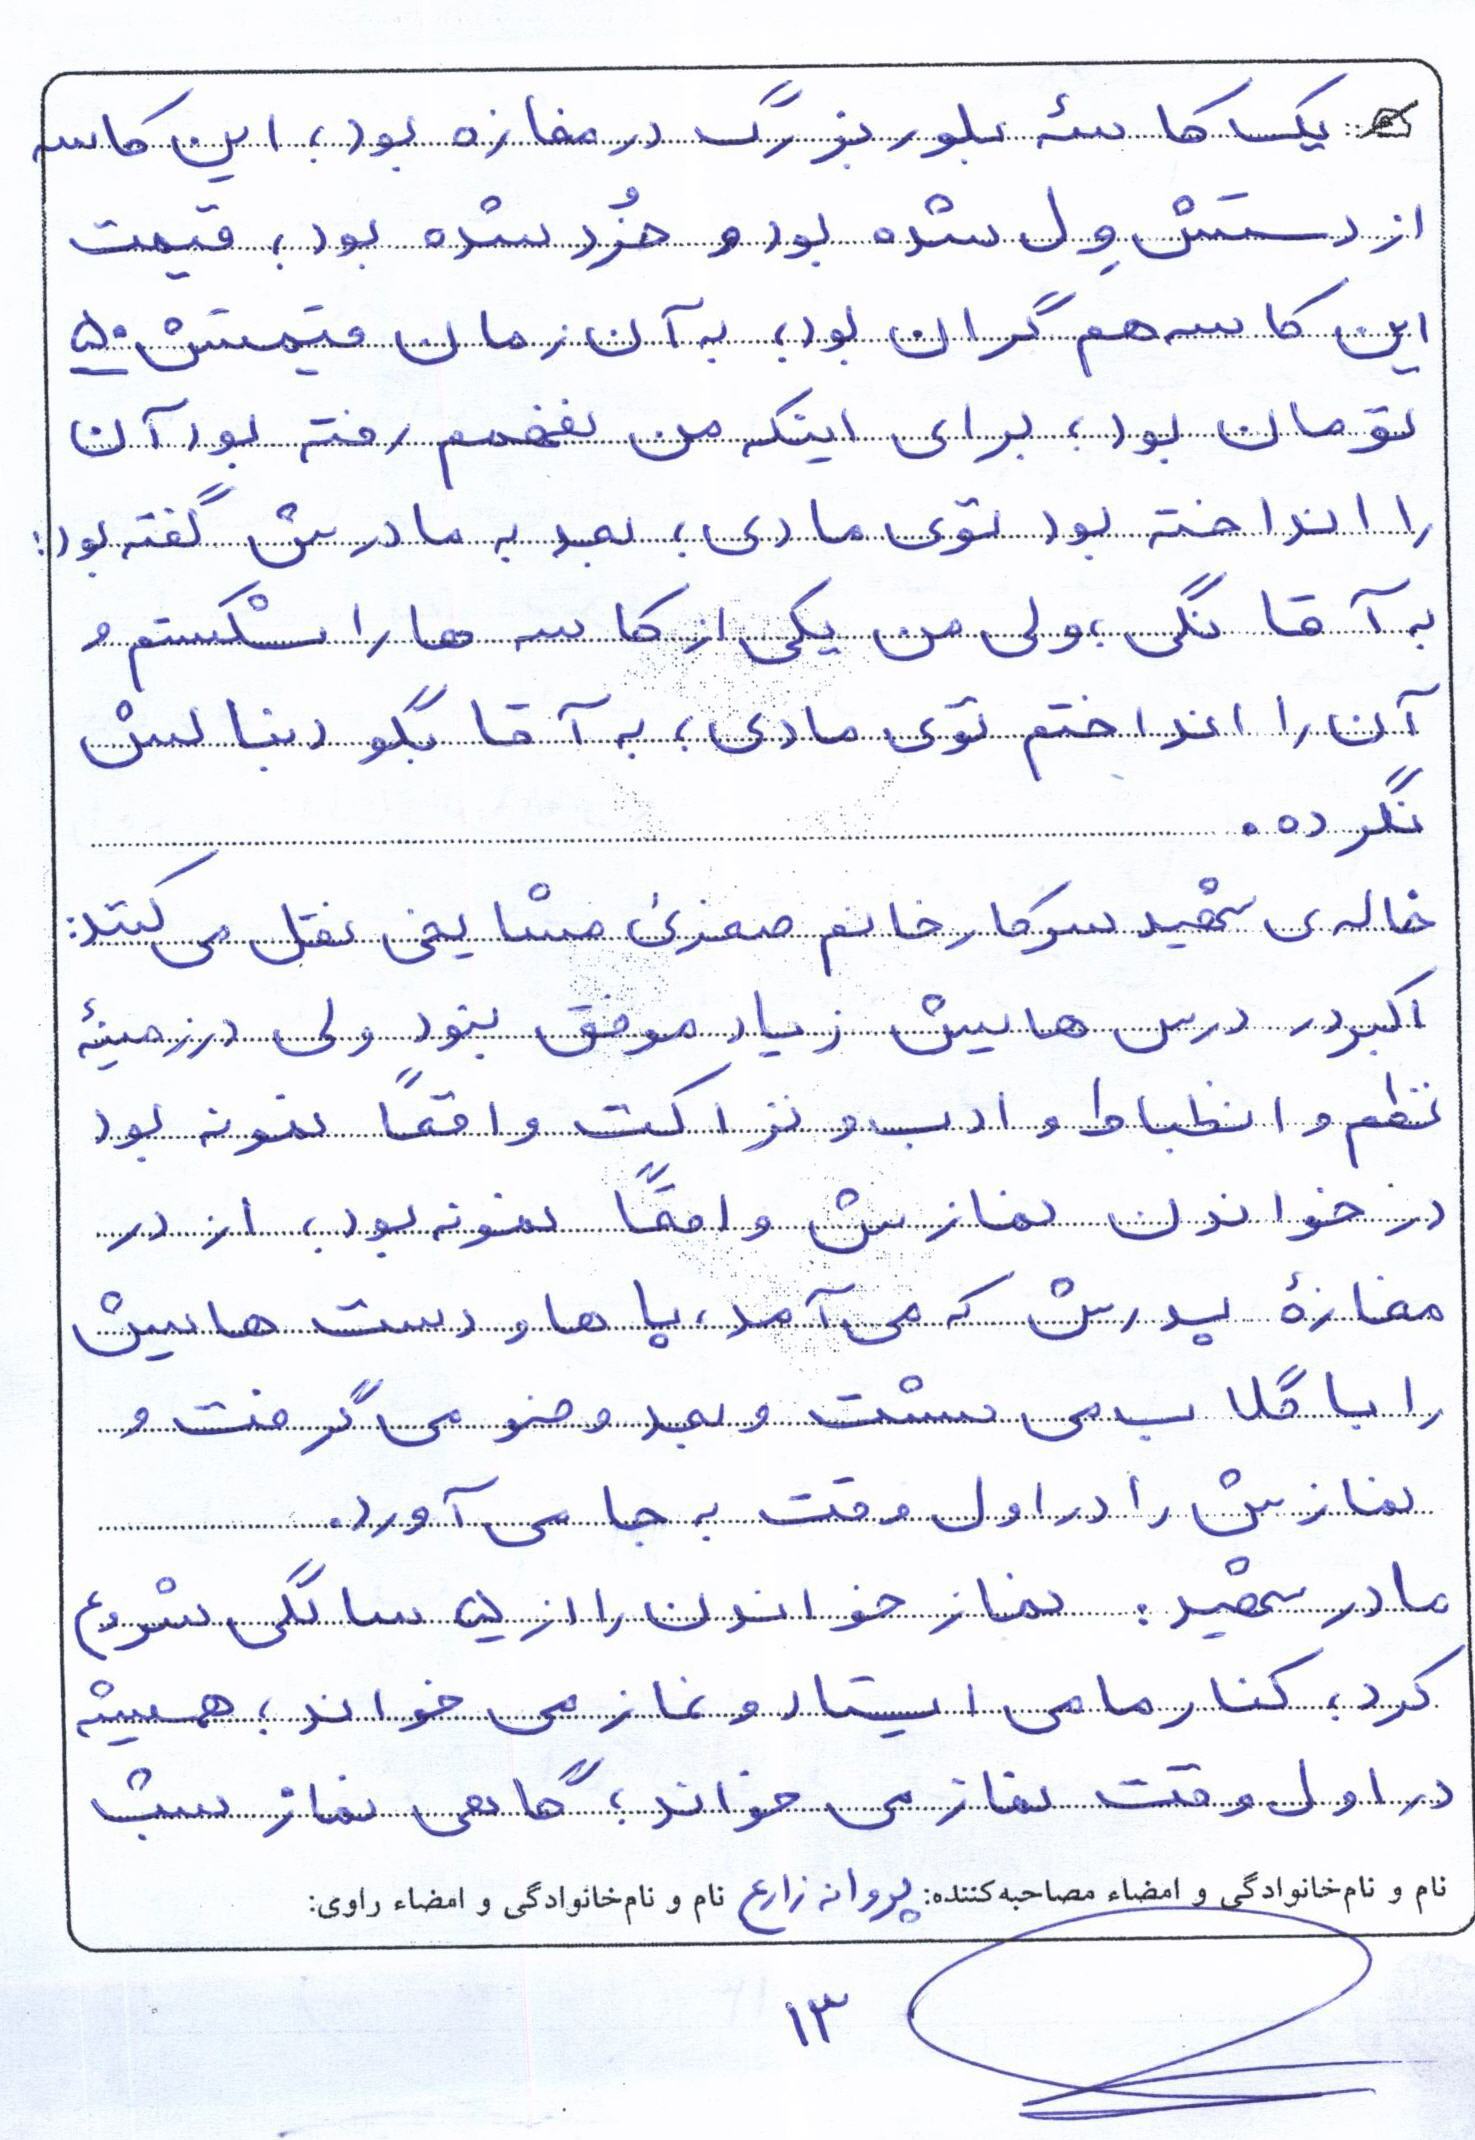 یک کاسهٔ بلور بزرگ در مغازه بود؛ این کاسه
از دستش وِل شده بود و خُرد شده بود؛ قیمت
این کاسه هم گران بود؛ به آن زمان قیمتش ۵۰
تومان بود؛ برای اینکه من نفهمم رفته بود آن
را انداخته بود توی مادی؛ بعد به مادرش گفته بود:
به آقا نگی؛ ولی من یکی از کاسه ها را شکستم و
آن را انداختم توی مادی؛ به آقا بگو دنبالش
نگرده.
خاله‌ی شهید سرکار خانم صغری مشایخی نقل می کنند:
اکبر در درس هایش زیاد موفق نبود ولی در زمینهٔ
نظم و انظباط و ادب و نزاکت واقعاً نمونه بود
در خواندن نمازش واقعاً نمونه بود، از در
مغازهٔ پدرش که می آمد، پاها و دست هایش
را با گلاب می شست و بعد وضو می گرفت و
نمازش را در اول وقت به جا می آورد.
مادر شهید: نماز خواندن را از ۵ سالگی شروع
کرد؛ کنار ما می ایستاد و نماز می خواند؛ همیشه
در اول وقت نماز می خواند؛ گاهی نماز شب
نام و نام خانوادگی و امضاء مصاحبه کننده: پروانه زارع نام و نام خانوادگی و امضاء راوی:
۱۳